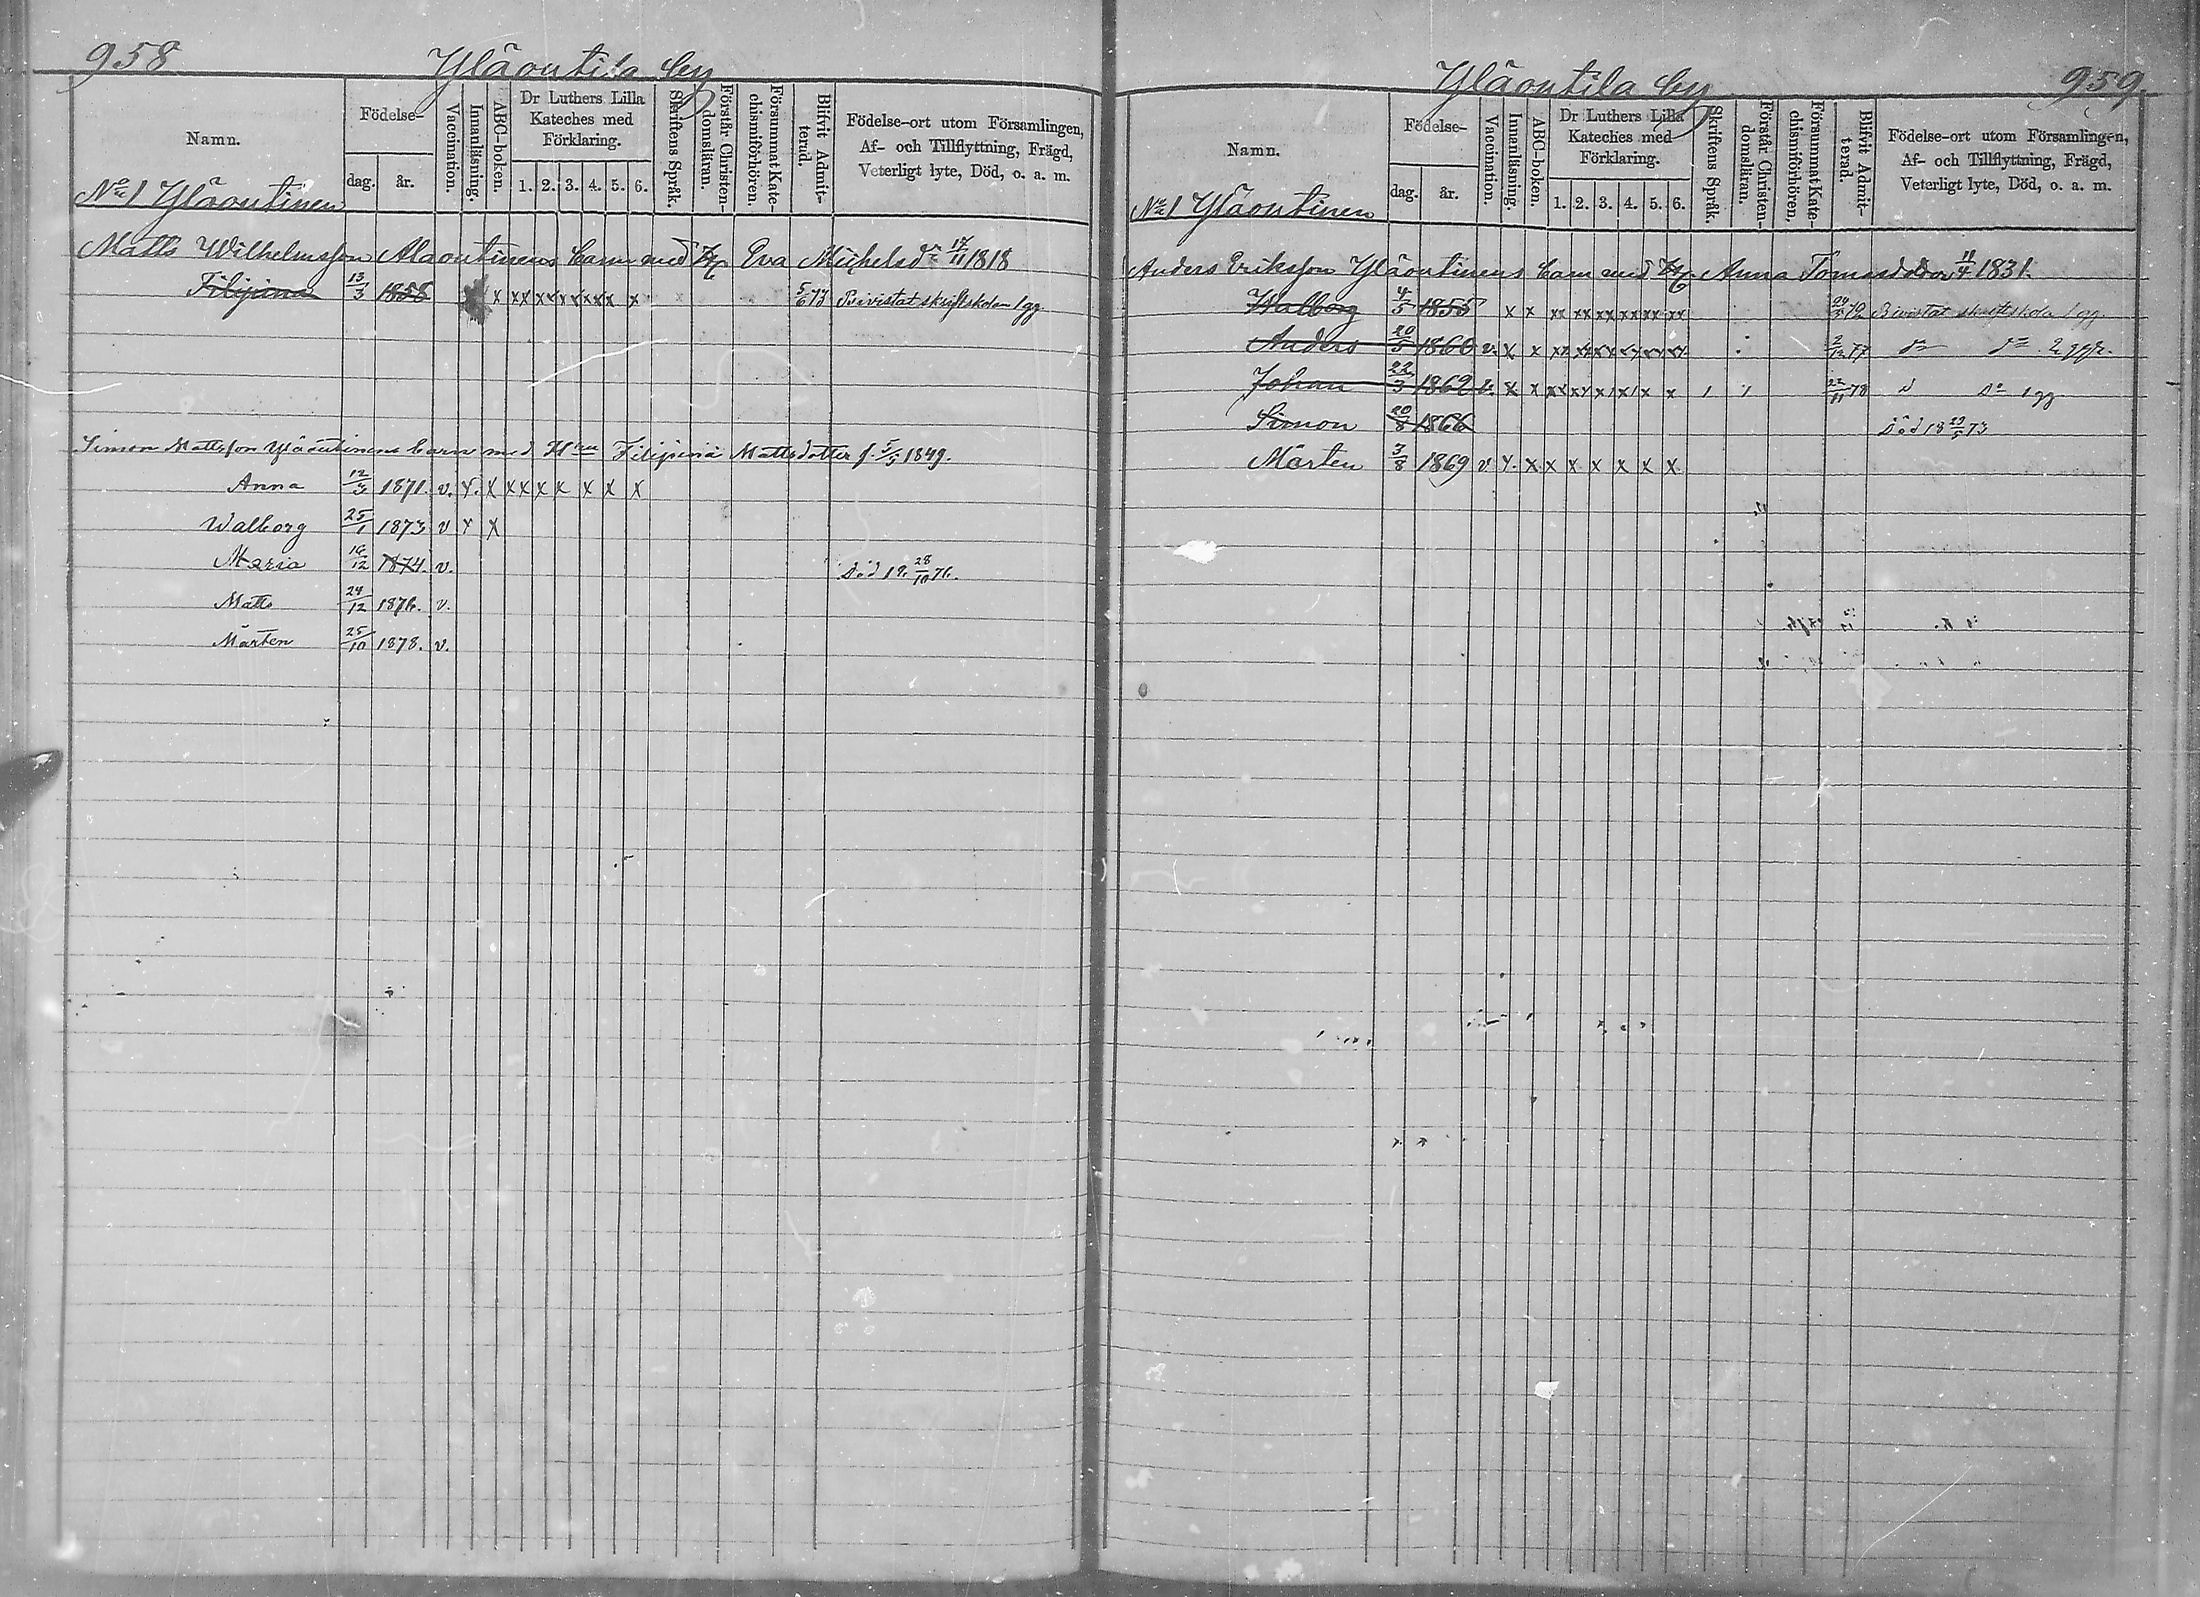 958 Yläoutila by
Namn. Födelse- dag. år. Vaccination. Innanläsning. ABC-boken. Dr Luthers Lilla Kateches med Förklaring. 1. 2. 3. 4. 5. 6. Skriftens Språk. Förstår Christendomsläran. Försummat Katechismiförhören. Blifvit Admitterad. Födelse-ort utom Församlingen, Af- och Tillflyttning, Frägd, Veterligt lyte, Död, o. a. m.
No 1 Yläoutinen
Matts Wilhelmsson Alaoutinens barn med H Eva Michelsdr 17/11 1818
Filipina 13/3 1858 x xx x x x x x x x 5/6 73 Bivistat skriftskolan 1 gg
Simon Mattsson Yläoutinens barn med Hru Filipina Mattsdotter f. 5/5 1849.
Anna 12/3 1871. v. x. x xx x x x x x
Walborg 25/1 1873 v x x
Maria 16/12 1874. v. Död 18 28/10 76.
Matts 24/12 1876. v.
Mårten 25/10 1878. v.
Yläoutila by 959.
Namn. Födelse- dag. år. Vaccination. Innanläsning. ABC-boken. Dr Luthers Lilla Kateches med Förklaring. 1. 2. 3. 4. 5. 6. Skriftens Språk. Förstår Christendomsläran. Försummat Katechismiförhören. Blifvit Admitterad. Födelse-ort utom Församlingen, Af- och Tillflyttning, Frägd, Veterligt lyte, Död, o. a. m.
No 1 Yläoutinen
Anders Eriksson Yläoutinens barn med H Anna Tomasdotter 18/4 1831.
Walborg 4/5 1855 x x xx xx xx xx xx xx Bivistat skriftskola 1 gg.
Anders 20/5 1860 v. x x xx xx xx xx xx xx 2/12 77 do do 2 ggr.
Johan 22/3 1862 v. x x xx xx x x x x 22/11 78 d do 1 gg
Simon 20/8 1866 Död 18 23/5 73
Mårten 3/8 1869 v x. x x x x x x x